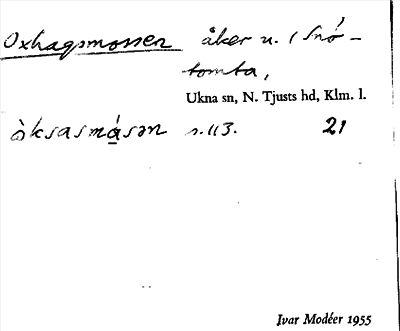 Oxhagsmossen åker u. (Snö-
tomta,
Ukna sn, N. Tjusts hd, Klm. l.
òksasmá̲sən s. 113. 21
Ivar Modéer 1955